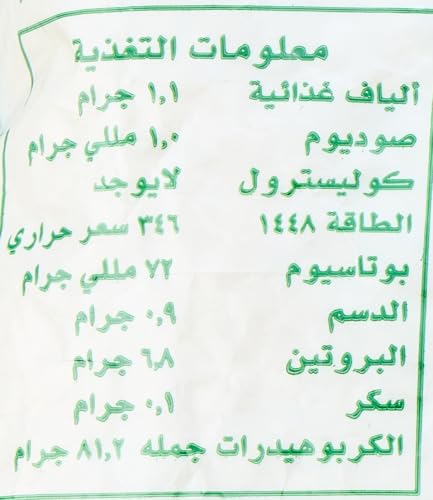 معلومات التغذية
ألياف غذائية ١,١ جرام
صوديوم ١,٠ مللي جرام
كوليسترول لايوجد
الطاقة ١٤٤٨ ٣٤٦ سعر حراري
بوتاسيوم ٧٢ مللي جرام
الدسم ٠,٩ جرام
البروتين ٦,٨ جرام
سكر ٠,١ جرام
الكربوهيدرات جمله ٨١,٢ جرام